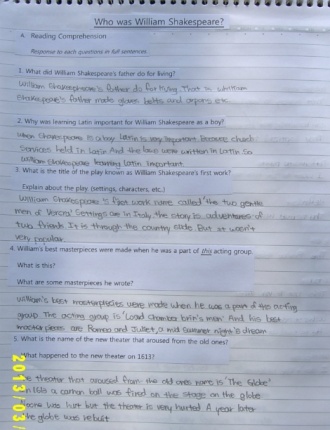 Who was William Shakespeare?
A. Reading Comprehension
Response to each questions in full sentences.
1. What did William Shakespeare's father do for living?
William Shakespeare's father do for living. That is William
Shakespeare's father made gloves belts and aprons etc.
2. Why was learning Latin important for William Shakespeare as a boy?
When Shakespeare is a boy Latin is very important because church
Services held in Latin And the laws were written in Latin So
William Shakespeare learning Latin important.
3. What is the title of the play known as William Shakespeare's first work?
Explain about the play. (settings, characters, etc.)
William Shakespeare's first work name called 'the two gentle
men of Verona' Settings are in Italy. the story is adventures of
two friends. It is through the country side. But it wasn't
very popular.
4. William's best masterpieces were made when he was a part of this acting group.
What is this?
What are some masterpieces he wrote?
William's best masterpieces were made when he was a part of this acting
group. The acting group is 'Load chamber brin's men' And his best
are Romeo and Juliet, a mid summer night's dream
5. What is the name of the new theater that aroused from the old ones?
What happened to the new theater on 1613?
theater that aroused from the old ones name is 'The Globe'
a cannon ball was fired on the stage on the globe.
was hurt but the theater is very hurted A year later
the globe was rebuilt
2013/03/